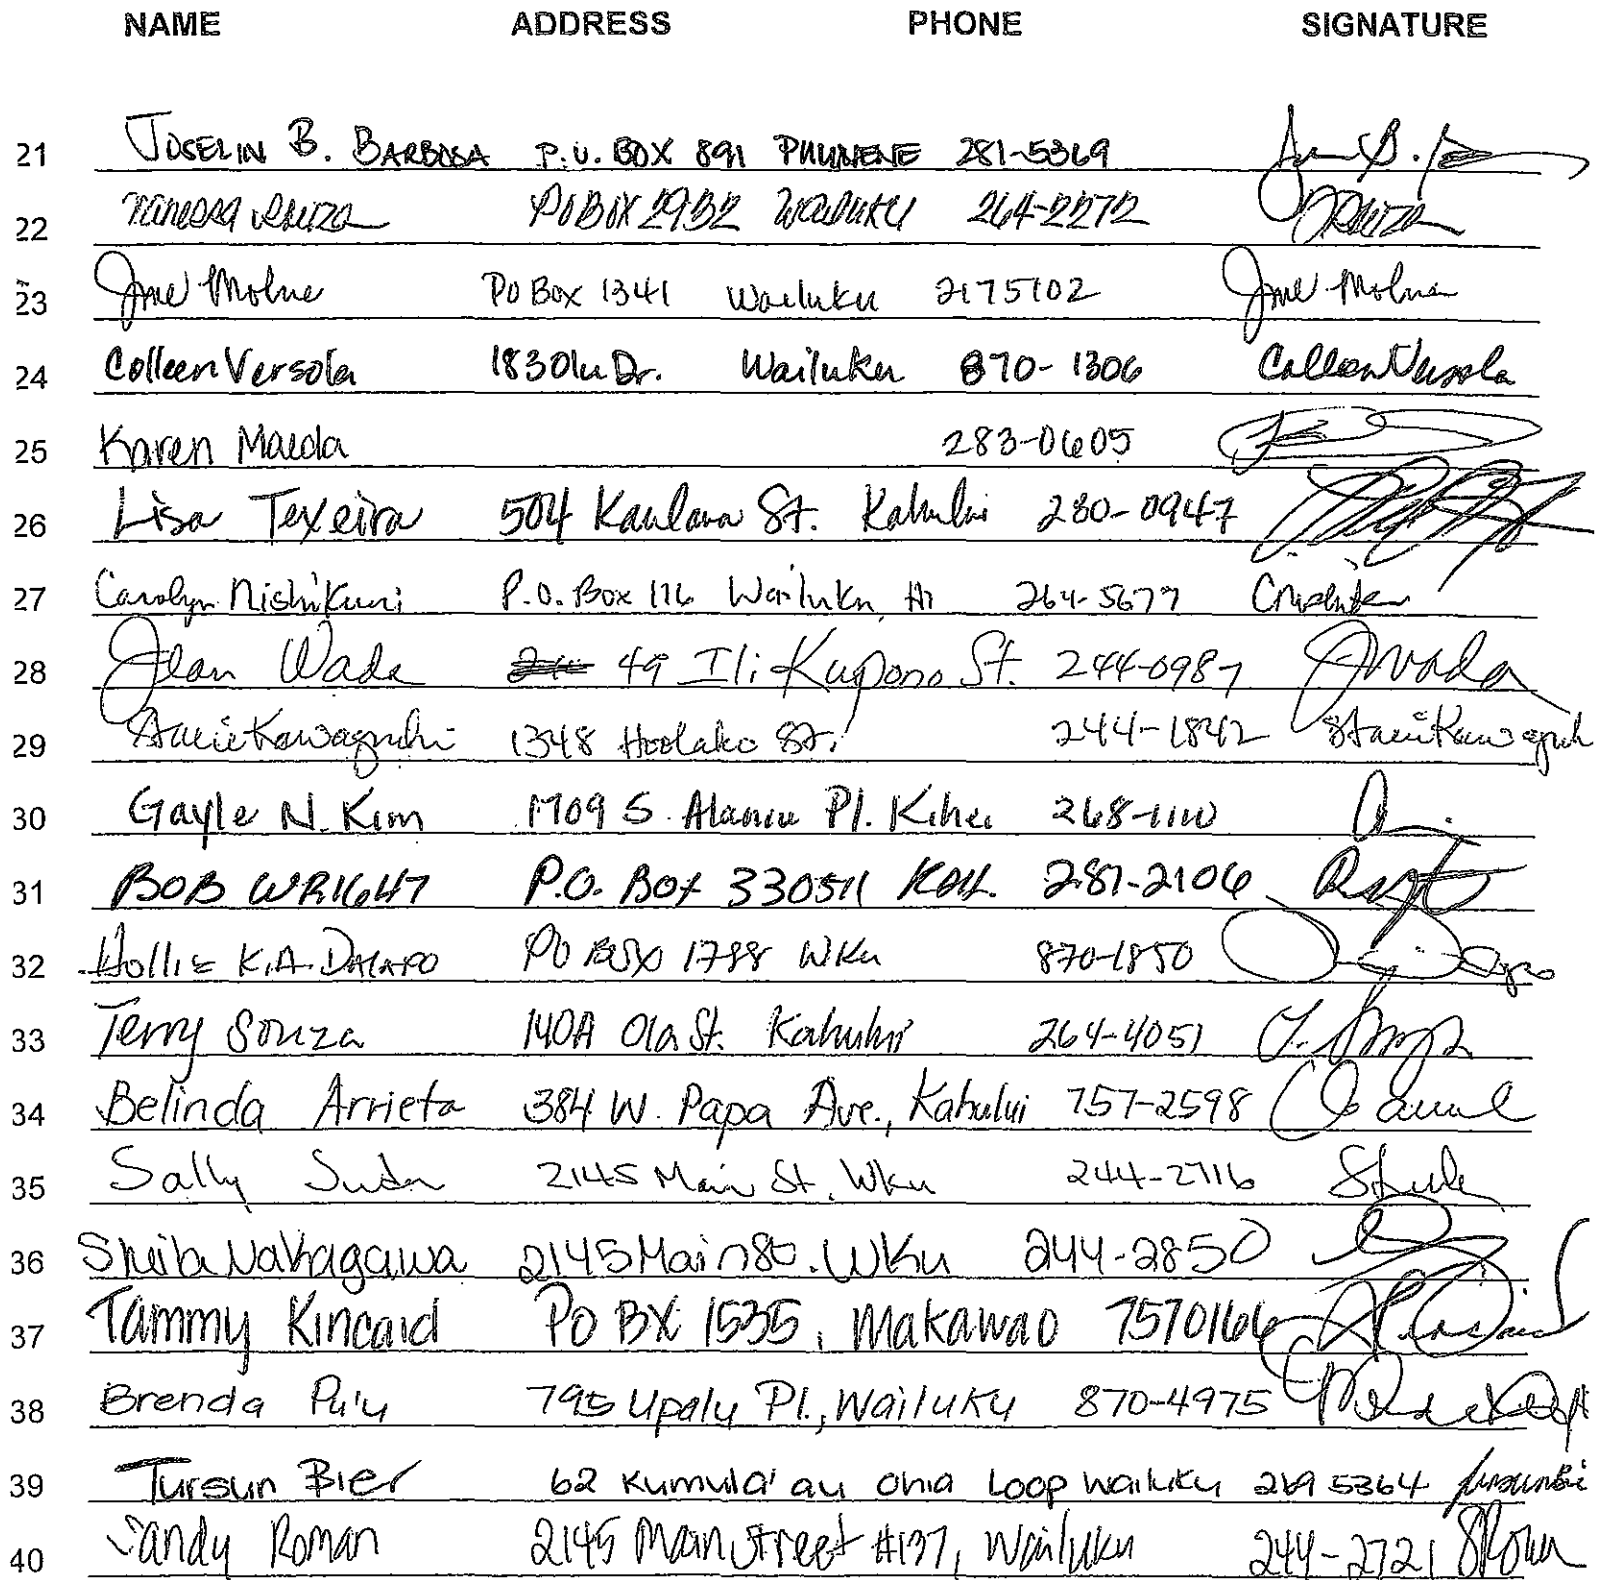 NAME ADDRESS PHONE SIGNATURE
21 JOSELIN B. BARBOSA P.O. BOX 891 PUUNENE 281-5369
22 Vanessa Souza PO BOX 2932 Wailuku 264-2272
23 PO Box 1341 Wailuku 2175102
24 Colleen Versola 1830 Iu Dr. Wailuku 870-1306 Colleen Versola
25 Karen Maeda 283-0605
26 Lisa Texeira 504 Kaulana St. Kahului 280-0947
27 Carolyn Nishikuni P.O. Box 116 Wailuku, HI 264-5677
28 Jean Wada 49 Ili Kupono St. 244-0987 JWada
29 Staci Kawaguchi 1348 Hoolako St. 244-1842 Staci Kawaguch
30 Gayle N. Kim 1709 S. Alaniu Pl. Kihei 268-1110
31 BOB WRIGHT P.O. BOX 330511 KAH. 281-2106
32 Hollie K.A. DALAPO PO BOX 1788 WKu 870-1850
33 Terry Souza 140A Ola St. Kahului 264-4051
34 Belinda Arrieta 384 W. Papa Ave., Kahului 757-2598
35 Sally Suda 2145 Main St. Wku 244-2716
36 Sheila Nakagawa 2145 Main St. WKu 244-2850
37 Tammy Kincaid PO BX 1535, Makawao 7570166
38 Brenda Pu'u 795 Upalu Pl., Wailuku 870-4975
39 Tursun Bier 62 Kumula'au ohia Loop Wailuku 269 5364
40 Sandy Roman 2145 Main Street #137, Wailuku 244-2721 SRoman